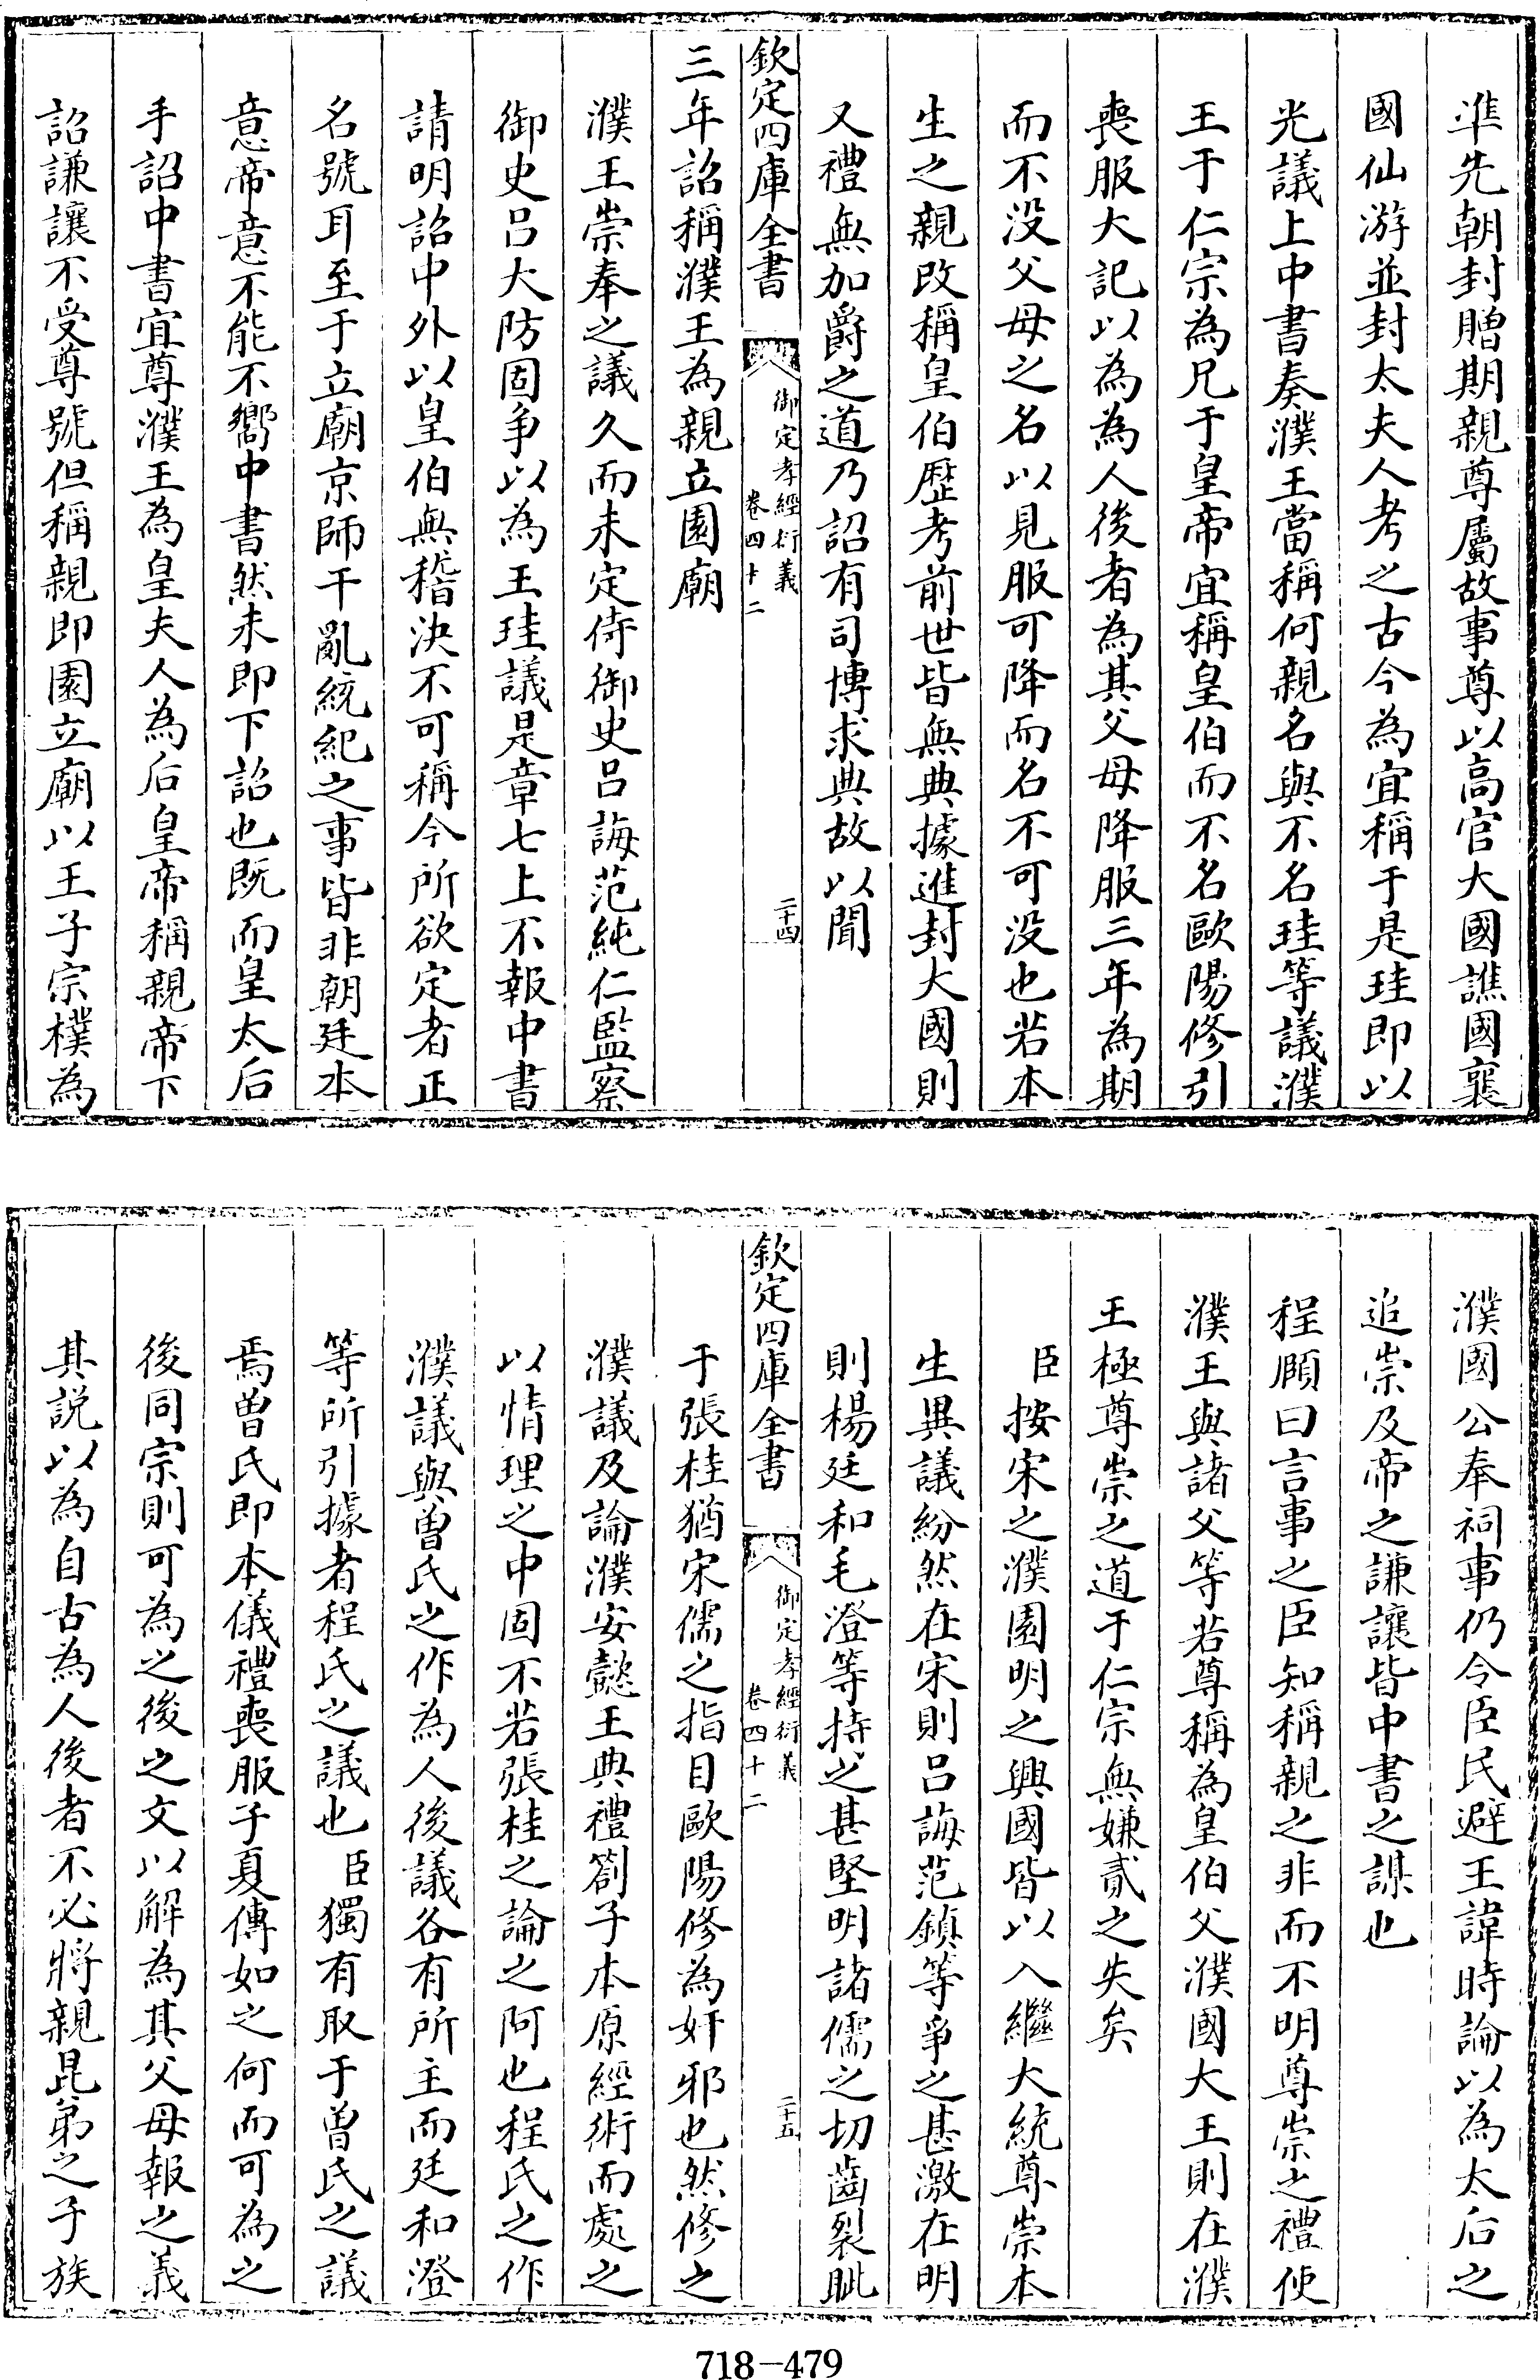 凖先朝封贈期親尊屬故事尊以高官大國譙國襄
國仙游並封太夫人考之古今為宜稱于是珪即以
光議上中書奏濮王當稱何親名與不名珪等議濮
王于仁宗為兄于皇帝宜稱皇伯而不名歐陽修引
喪服大記以為為人後者為其父母降服三年為期
而不没父母之名以見服可降而名不可没也若本
生之親改稱皇伯歴考前世皆無典據進封大國則
又禮無加爵之道乃詔有司博求典故以聞
欽定四庫全書
御定孝經衍義
卷四十二
二十四
三年詔稱濮王為親立園廟
濮王崇奉之議久而未定侍御史呂誨范純仁監察
御史呂大防固争以為王珪議是章七上不報中書
請明詔中外以皇伯無稽決不可稱今所欲定者正
名號耳至于立廟京師干亂統紀之事皆非朝廷本
意帝意不能不嚮中書然未即下詔也既而皇太后
手詔中書宜尊濮王為皇夫人為后皇帝稱親帝下
詔謙讓不受尊號但稱親即園立廟以王子宗樸為
濮國公奉祠事仍令臣民避王諱時論以為太后之
追崇及帝之謙讓皆中書之謀也
程頤曰言事之臣知稱親之非而不明尊崇之禮使
濮王與諸父等若尊稱為皇伯父濮國大王則在濮
王極尊崇之道于仁宗無嫌貳之失矣
臣按宋之濮園明之興國皆以入繼大統尊崇本
生異議紛然在宋則呂誨范鎮等爭之甚激在明
則楊廷和毛澄等持之甚堅明諸儒之切齒裂眦
欽定四庫全書
御定孝經衍義
卷四十二
二十五
于張桂猶宋儒之指目歐陽修為奸邪也然修之
濮議及論濮安懿王典禮劄子本原經術而處之
以情理之中固不若張桂之論之阿也程氏之作
濮議與曽氏之作為人後議各有所主而廷和澄
等所引據者程氏之議也臣獨有取于曽氏之議
焉曽氏即本儀禮喪服子夏傳如之何而可為之
後同宗則可為之後之文以解為其父母報之義
其説以為自古為人後者不必將親昆弟之子族
718-479